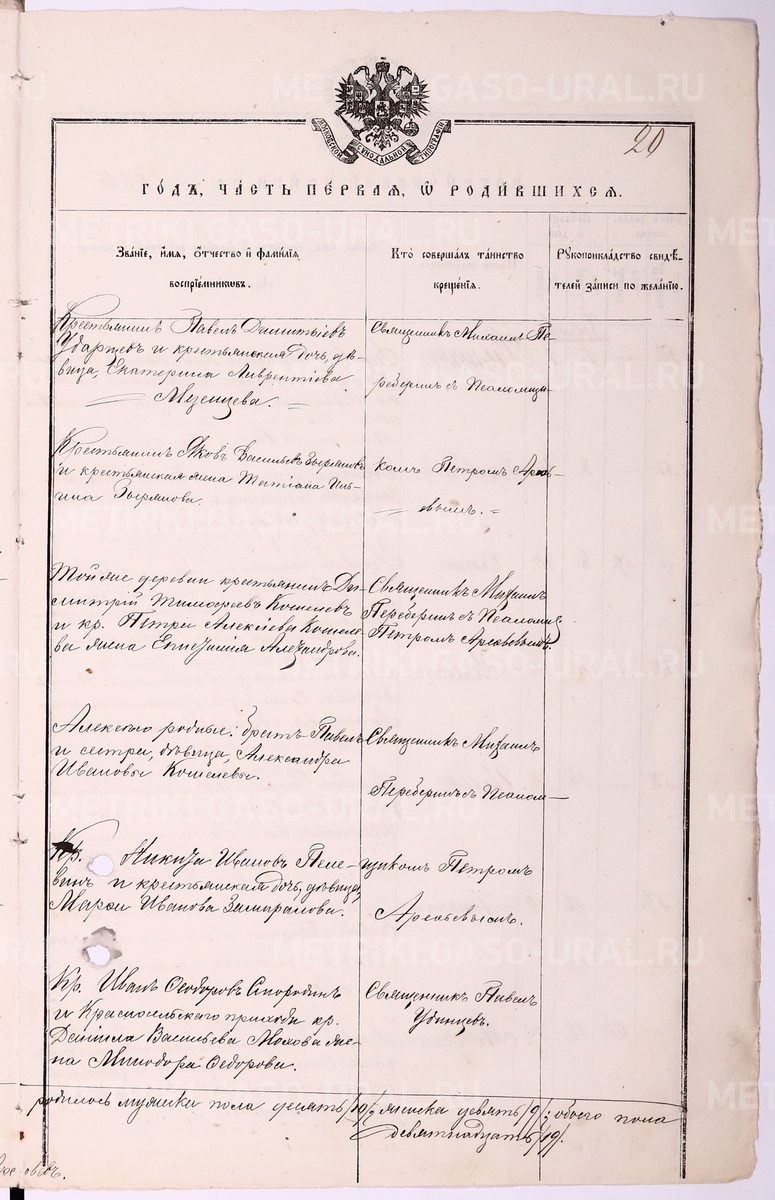 МОСКОВСКОЙ СѴНОДАЛЬНОЙ ТИПОГРАФІИ
20
ГОДЪ, ЧАСТЬ ПЕРВАЯ, Ѡ РОДИВШИХСЯ.
Званіе, имя, отчество и фамилія
воспріемниковъ.
Кто совершалъ таинство
крещенія.
Рукоприкладство свидѣ-
телей записи по желанію.
Крестьянинъ Павелъ
и крестьянская дочь, дѣ-
вица, Екатерина Лаврентіева
Священникъ Михаилъ Пе-
реберинъ съ Псаломщи-
Крестьянинъ Яковъ Васильевъ Зыряновъ
и крестьянская жена Татіана Иль-
ина Зырянова.
комъ Петромъ Арефь-
евымъ.
Той же деревни крестьянинъ Ди-
митрій Тимофеевъ Кошелевъ
и кр. Петра Алексіева Кошеле-
ва жена Александрова.
Священникъ Михаилъ
Переберинъ съ Псаломщ.
Петромъ Арефьевымъ.
Алексѣю родные: братъ Павелъ
и сестра, дѣвица, Александра
Ивановы Кошелевы.
Священникъ Михаилъ
Переберинъ съ Псалом-
Кр. Никита Ивановъ Пеле-
винъ и крестьянская дочь, дѣвица,
Иванова
щикомъ Петромъ
Арефьевымъ.
Кр. Иванъ Ѳеодоровъ
и Красносельскаго прихода кр.
Даніила Васильева Мохова же-
на Минодора Ѳедорова.
Священникъ Павелъ
Удинцевъ.
родилось мужска пола десять /10/, женска девять /9/, обоего пола
девятнадцать /19/.
METRIKI.GASO-URAL.RU